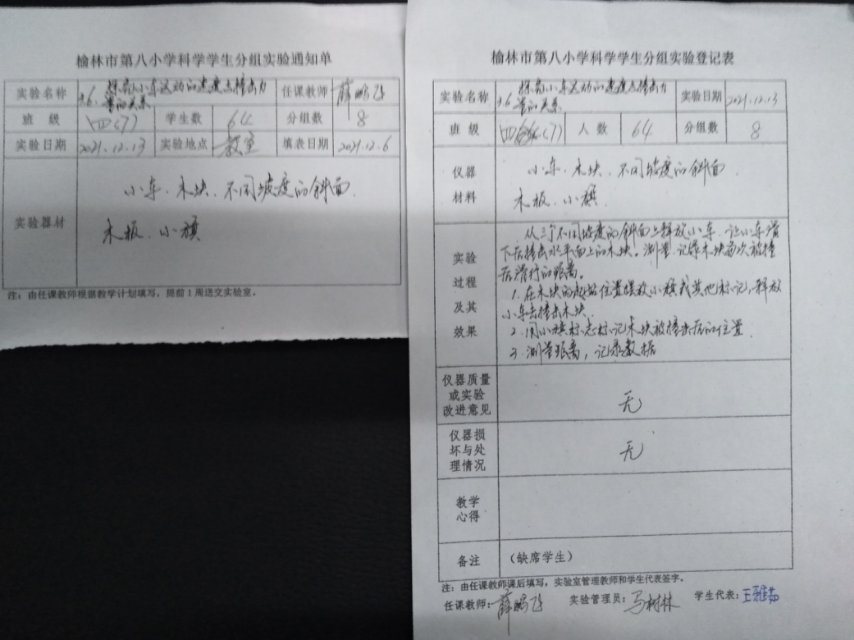 榆林市第八小学科学学生分组实验通知单
实验名称 36.探究小车运动的速度与撞击力量的关系 任课教师 薛鹏飞
班 级 四(7) 学生数 64 分组数 8
实验日期 2021.12.13 实验地点 教室 填表日期 2021.12.6
实验器材 小车、木块、不同坡度的斜面
木板、小旗
注:由任课教师根据教学计划填写,提前1周送交实验室。
榆林市第八小学科学学生分组实验登记表
实验名称 36.探究小车运动的速度与撞击力量的关系 实验日期 2021.12.13
班 级 四(7) 人 数 64 分组数 8
仪器材料 小车、木块、不同坡度的斜面
木板、小旗
实验过程及其效果
从三个不同坡度的斜面上释放小车,让小车滑
下后撞击水平面上的木块。测量、记录木块每次被撞
后滑行的距离。
1.在木块的起始位置摆放小旗或其他标记,释放
小车去撞击木块
2.用小旗标志标记木块被撞击后的位置
3.测量距离,记录数据
仪器质量或实验改进意见 无
仪器损坏与处理情况 无
教学心得
备注 (缺席学生)
注:由任课教师课后填写,实验室管理教师和学生代表签字。
任课教师:薛鹏飞 实验管理员:马树林 学生代表:王雅茹